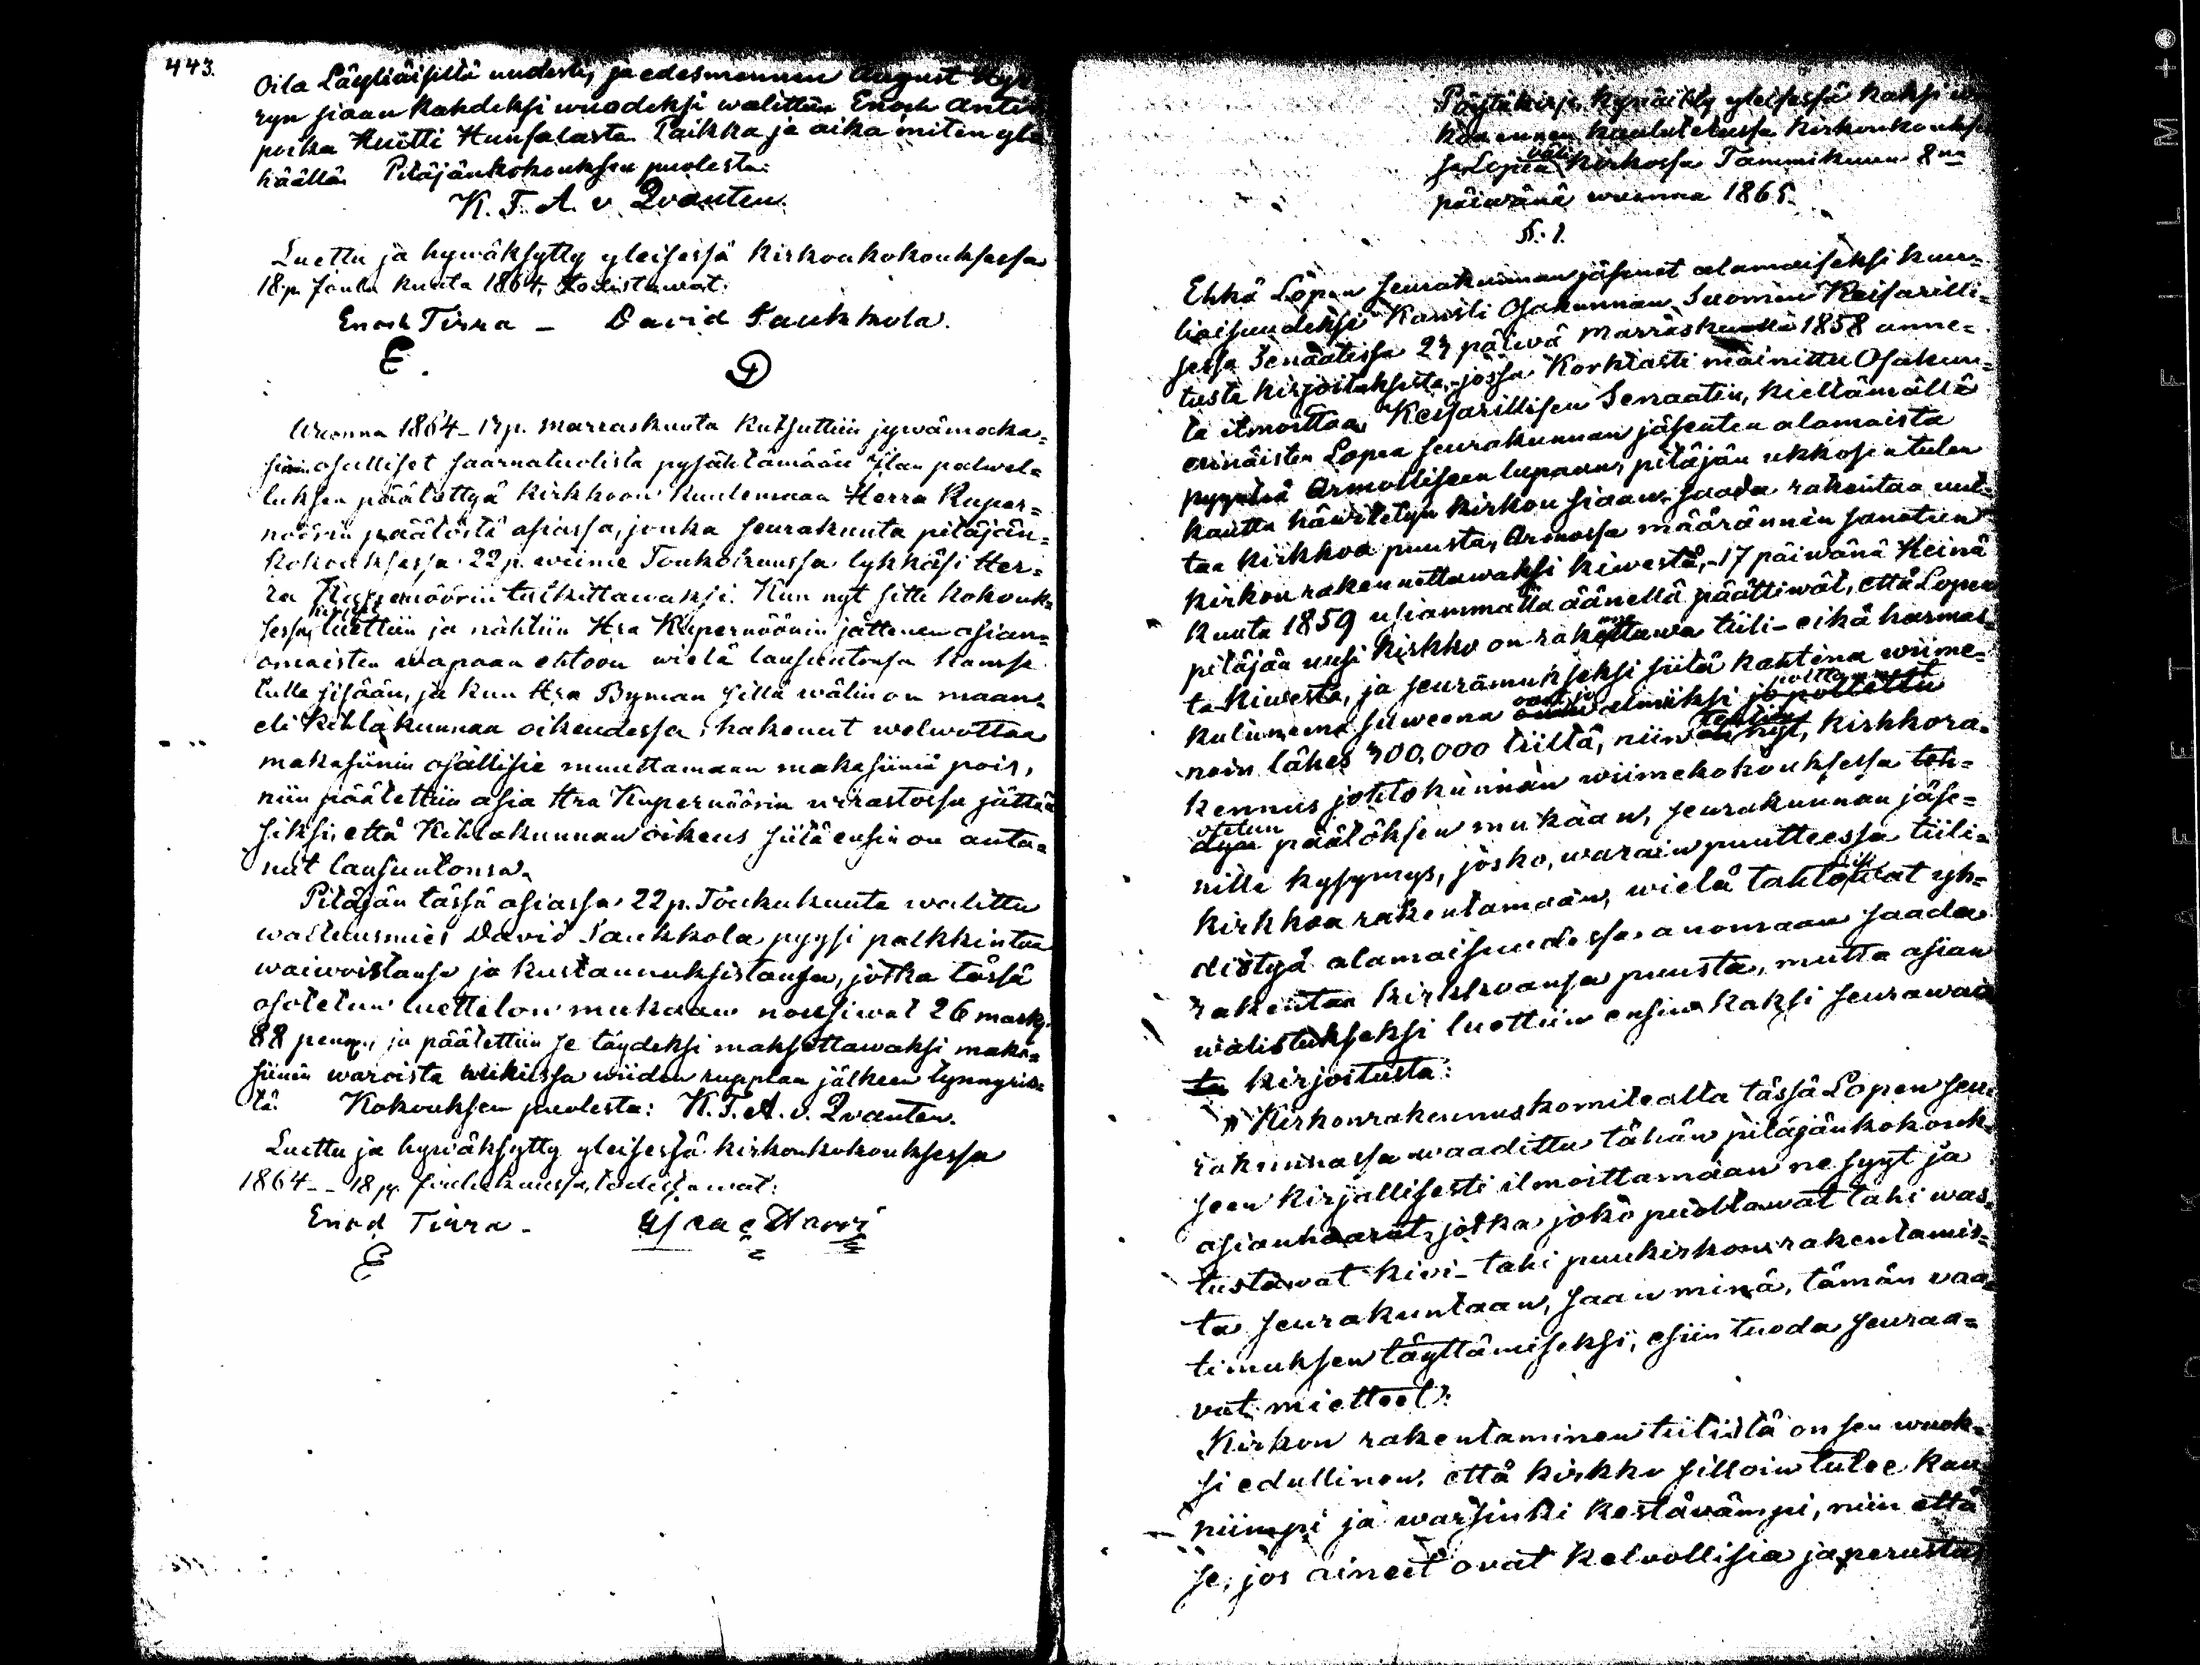 443.
oila Läyliäisillä uudesti, ja edesmennen August
ryn siaan kahdeksi wuodeksi walittiin Enoch Antin
poika Huitti Hunsalasta. Paikka ja aika miten yla
häällä. Pitäjänkokouksen puolesta:
K. F. A. v Qvanten.
Luettu ja hywäksytty yleisessä kirkonkokouksessa
18 p. Joulu kuuta 1864, todistawat:
Enoch Tirra — David Saukkola.
E. D
Wuonna 1864 – 17 p. marraskuuta kutsuttiin jywämaka=
siinin osalliset saarnatuolista pysähtämään Jlan palwel=
luksen päätettyä kirkkoon kuulemaan Herra Kuper=
nöörin päätöstä asiassa, jonka seurakunta pitäjän=
kokouksessa 22 p. wiime Toukokuussa lykkäsi Her=
ra Kupernöörin tutkittawaksi. Kun nyt sitte kokouk=
sessa luettiin ja nähtiin Hra Kupernöörin jättenen asian=
omaisten wapaan ehtoon wielä lausuntonsa kanssa
tulla sisään, ja kun Hra Byman sillä wälin on maan=
eli kihlakunnan oikeudessa hakenut welwottaa
makasiinin osallisia muuttamaan makasiinia pois,
niin päätettiin asia Hra Kupernöörin wirastossa jättää
siksi, että Kihlakunnan oikeus siitä ensin on anta=
nut lausuntonsa.
Pitäjän tässä asiassa 22 p. Toukokuuta walittu
waltuusmies David Saukkola pyysi palkkintoa
waiwoistansa ja kustannuksistansa, jotka tässä
osotetun luettelon mukaan nousiwat 26 mark.
88 penn., ja päätettiin se täydeksi maksettawaksi maka=
siinin waroista wiikissa wiiden ruplan jälkeen tynnyris=
tä. Kokouksen puolesta: K. F. A. v. Qvanten.
Luettu ja hywäksytty yleisessä kirkonkokouksessa
1864 – 18 p. Joulukuussa, todistawat:
Enoch Tirra – Isaac Harri
E
Pöytäkirja, pidetty yleisessä kaksi
koa ennen kuulutetussa kirkonkoukses
sa Lopen väli kirkossa Tammikuun 8na
päiwänä wuonna 1865.
§. 1.
Ehkä Lopen seurakunnan jäsenet alamaiseksi kuu=
liaisuudeksi Kansli Osakunnan Suomen Keisarilli=
sessa Senaatissa 27 päiwä Marraskuuta 1858 anne=
tusta kirjoituksesta, jossa Korkiasti mainittu Osakun=
ta ilmoittaa Keisarillisen Senaatin, kieltämällä
erinäisten Lopen seurakunnan jäsenten alamaista
pyyntöä Armolliseen lupaan, pitäjän ukkosen tulen
kautta häwitetyn kirkon siaan saada rakentaa uut=
taa kirkkoa puusta, Armossa määrännen sanotun
kirkon rakennettawaksi kiwestä, – 17 päiwänä Heinä
kuuta 1859 usiammalla äänellä päättiwät, että Lopen
pitäjän uusi kirkko on rakettawa tiili- eikä harmas=
ta kiwestä, ja seuramukseksi siitä kahtena wiime=
kuluneena suweena owat jo walmiiksi polttaneet
noin lähes 300,000 tiiltä, niin tehtiin nyt, kirkkora=
kennus johtokunnan wiimekokouksessa teh=
otetun päätöksen mukaan, seurakunnan jäse=
nille kysymys, josko, warain puutteessa tiili=
kirkkoa rakentamaan, wielä tahtoisiwat yh=
distyä alamaisuudessa anomaan saada
rakentaa kirkkoansa puusta, mutta asian
walistukseksi luettiin ensin kaksi seurawai
ta kirjoitusta:
"Kirkonrakennuskomitealta tässä Lopen seu=
rakunnassa waadittu tähän pitäjänkokouk=
seen kirjallisesti ilmoittamaan ne syyt ja
asianhaarat, jotka joko puoltawat tahi was=
tustawat kiwi- tahi puukirkon rakentamis=
ta seurakuntaan, saan minä, tämän vaa=
timuksen täyttämiseksi, esiin tuoda seuraa=
vat mietteet:
Kirkon rakentaminen tiilistä on sen wuok=
si edullinen, että kirkko silloin tulee kau=
niimpi ja warsinki kestävämpi, niin että
se, jos aineet ovat kelvollisia ja perustus